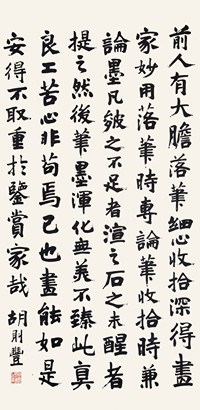 前人有大膽落筆細心收拾深得畫
家妙用落筆時專論筆收拾時兼
論墨凡皴之不足者渲之石之未醒者
提之然後筆墨渾化無美不臻此真
良工苦心非苟焉已也畫能如是
安得不取重於鑒賞家哉 胡則豐